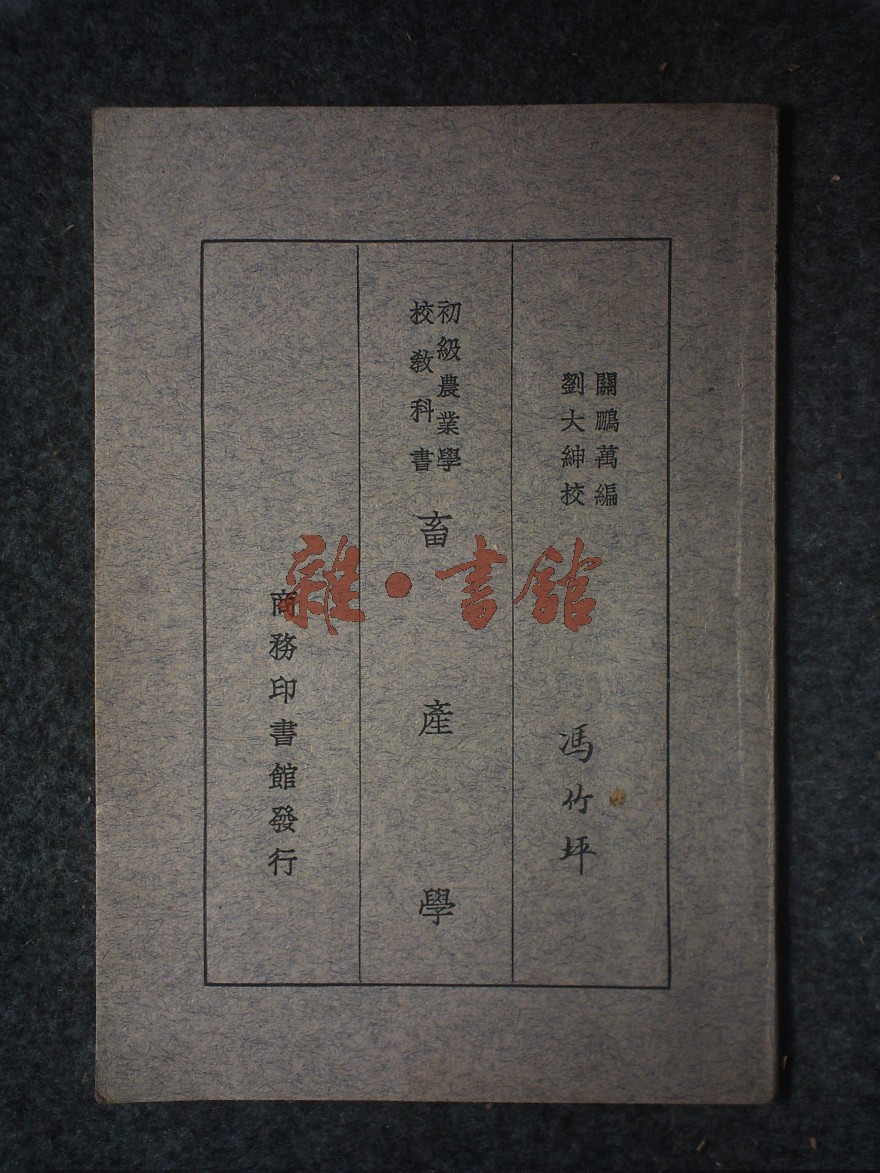 關鵬萬編
劉大紳校
馮竹坪
初級農業學
校教科書
畜產學
商務印書館發行
雜·書館